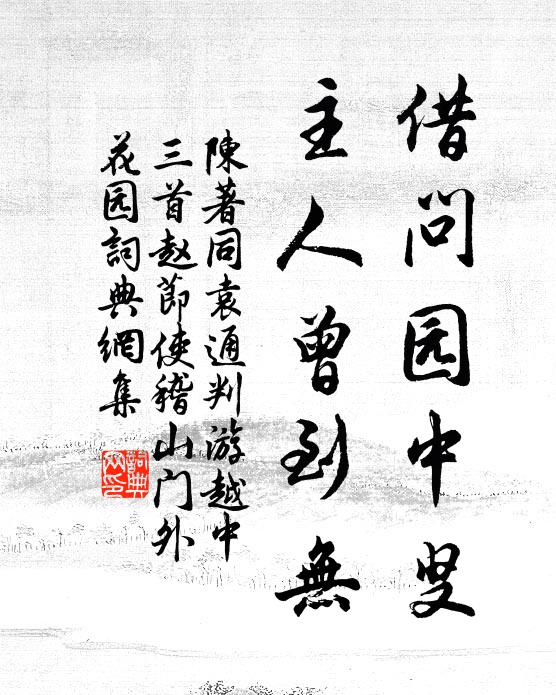 借问园中叟
主人曾到無
陳著同袁通判游越中
三首赵節使稽山门外
花园詞典網集
詞典
网印